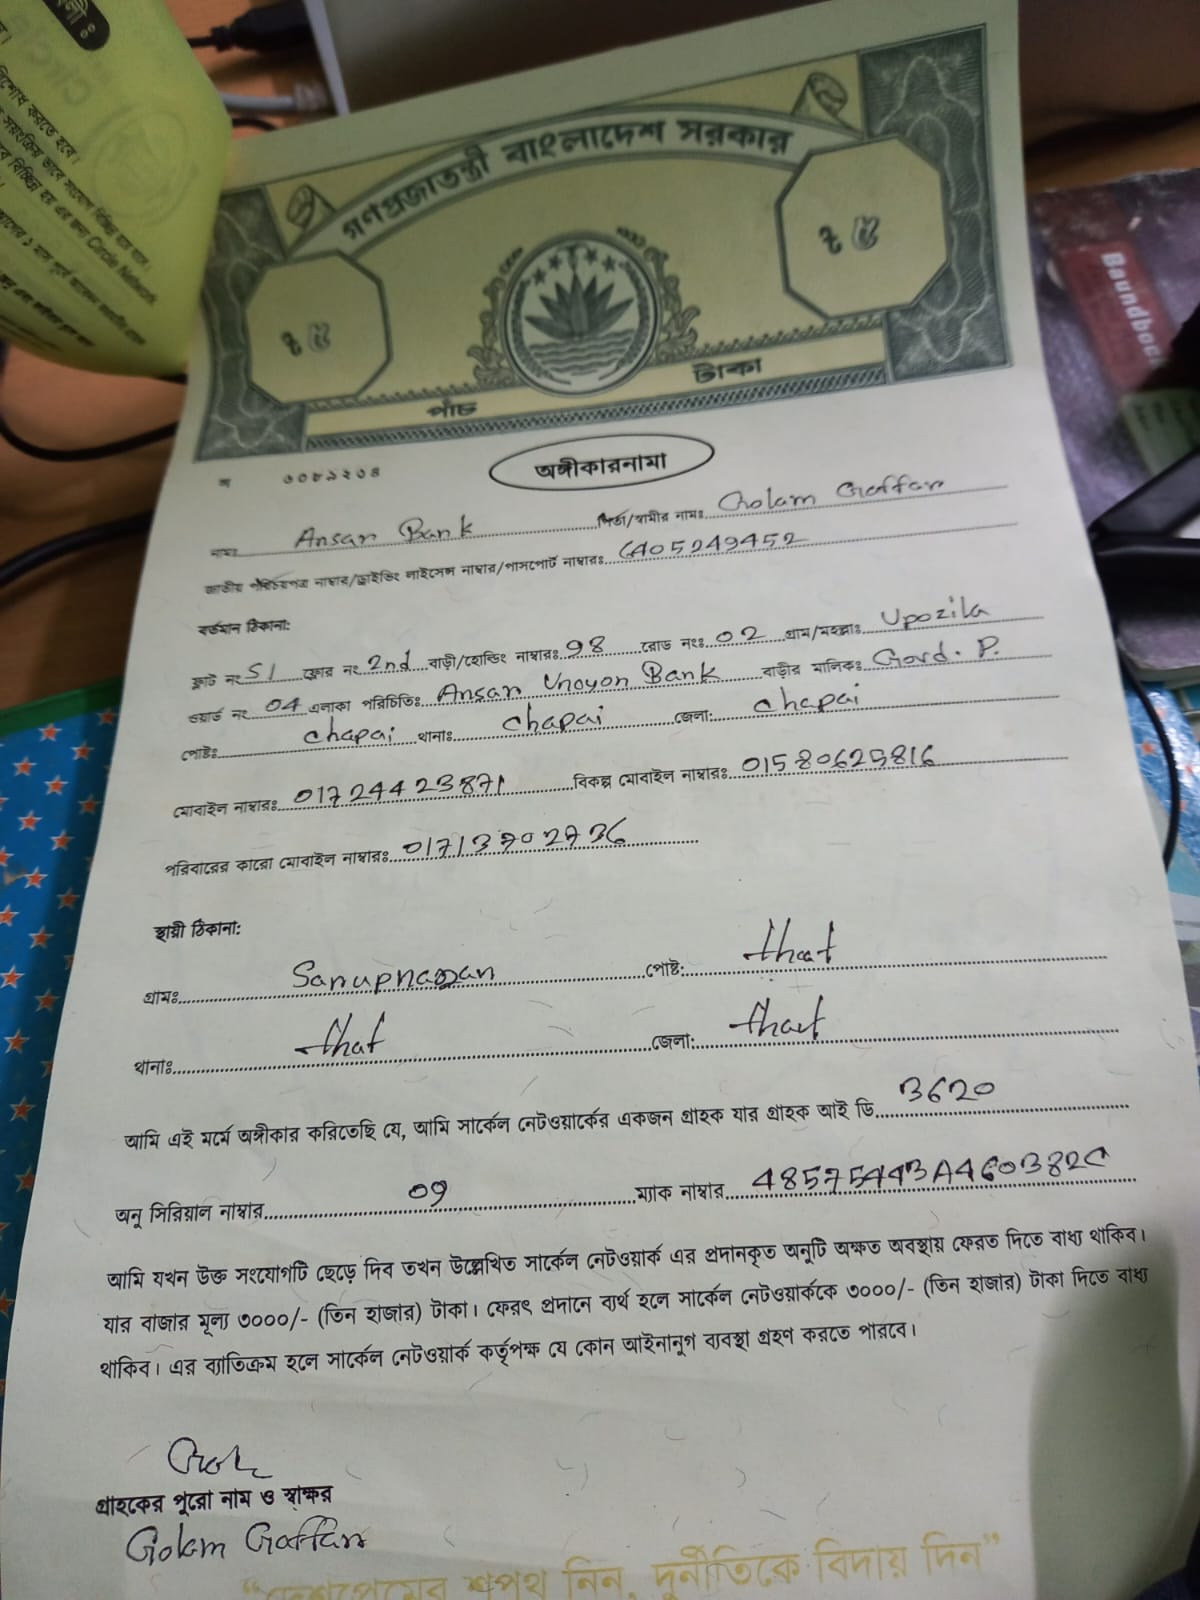 গণপ্রজাতন্ত্রী বাংলাদেশ সরকার
৳ ৫
৳ ৫
পাঁচ টাকা
অঙ্গীকারনামা
নামঃ Ansar Bank পিতা/স্বামীর নামঃ Golam Gaffar
জাতীয় পরিচয়পত্র নাম্বার/ড্রাইভিং লাইসেন্স নাম্বার/পাসপোর্ট নাম্বারঃ 5249452
বর্তমান ঠিকানা:
ফ্লাট নং S1 ফ্লোর নং 2nd বাড়ী/হোল্ডিং নাম্বারঃ 98 রোড নংঃ 02 গ্রাম/মহল্লাঃ Upozila
ওয়ার্ড নং 04 এলাকা পরিচিতিঃ Ansar Unoyon Bank বাড়ীর মালিকঃ Govd. P.
পোষ্টঃ chapai থানাঃ chapai জেলা: chapai
মোবাইল নাম্বারঃ 01724423871 বিকল্প মোবাইল নাম্বারঃ 01580625816
পরিবারের কারো মোবাইল নাম্বারঃ 01713702736
স্থায়ী ঠিকানা:
গ্রামঃ পোষ্ট: that
থানাঃ that জেলা: that
আমি এই মর্মে অঙ্গীকার করিতেছি যে, আমি সার্কেল নেটওয়ার্কের একজন গ্রাহক যার গ্রাহক আই ডি 3620
অনু সিরিয়াল নাম্বার 09 ম্যাক নাম্বার 48575443A460382C
আমি যখন উক্ত সংযোগটি ছেড়ে দিব তখন উল্লেখিত সার্কেল নেটওয়ার্ক এর প্রদানকৃত অনুটি অক্ষত অবস্থায় ফেরত দিতে বাধ্য থাকিব।
যার বাজার মূল্য ৩০০০/- (তিন হাজার) টাকা। ফেরৎ প্রদানে ব্যর্থ হলে সার্কেল নেটওয়ার্ককে ৩০০০/- (তিন হাজার) টাকা দিতে বাধ্য
থাকিব। এর ব্যাতিক্রম হলে সার্কেল নেটওয়ার্ক কর্তৃপক্ষ যে কোন আইনানুগ ব্যবস্থা গ্রহণ করতে পারবে।
গ্রাহকের পুরো নাম ও স্বাক্ষর
Golam Gaffar
"দেশপ্রেমের শপথ নিন, দুর্নীতিকে বিদায় দিন"